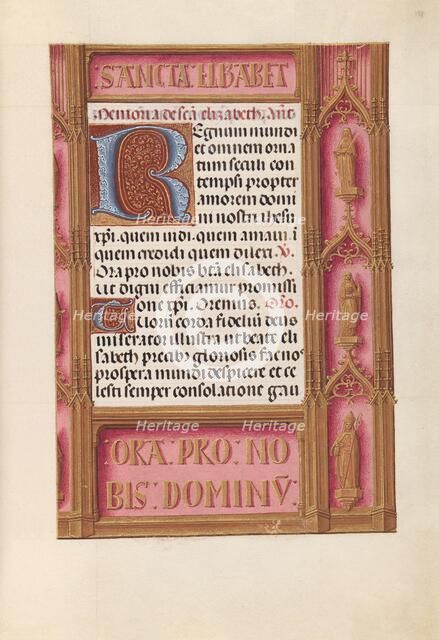 SANCTA ELISABET
Memoria de scā elizabeth. Ant̄
Regnum mundi
et omnem orna
tum seculi con
tempsi propter
amorem domi
ni nostri ihesu
xp̄i. quem uidi. quem amaui ī
quem credidi quem dilexi. V.
Ora pro nobis bēa elisabeth.
Ut digni efficiamur promissi
one xp̄i. Oremus. Oīo.
Tuorū corda fidelium deus
miserator illustra ut beate eli
sabeth precibꝫ gloriosis fac nos
prospera mundi despicere et ce
lesti semper consolatione gau
ORA PRO NO
BIS DOMINŪ
Heritage
Heritage
Heritage
Heritage
Heritage
Heritage